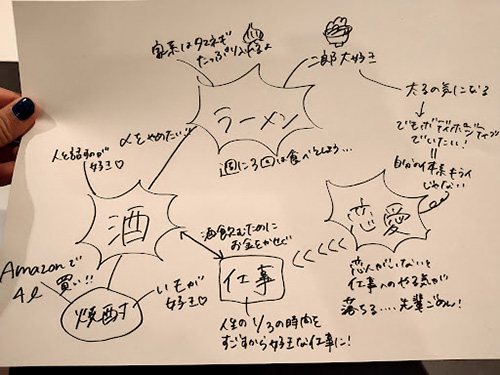 家系はタマネギ
たっぷり入れるよ
二郎大好き
ラーメン
太るの気になる
人をやめたい!!
週に3回は食べてしまう…
でもボディポジティブ
でいたい!
人と話すのが
好き♡
酒
酒飲むために
お金をかせぐ
恋愛
Amazonで
4L買い!!
焼酎
いもが
好き♡
仕事
人生の1/3の時間を
すごすから好きな仕事に!
恋人がいないと
仕事へのやる気が
落ちる....先輩ごめん!